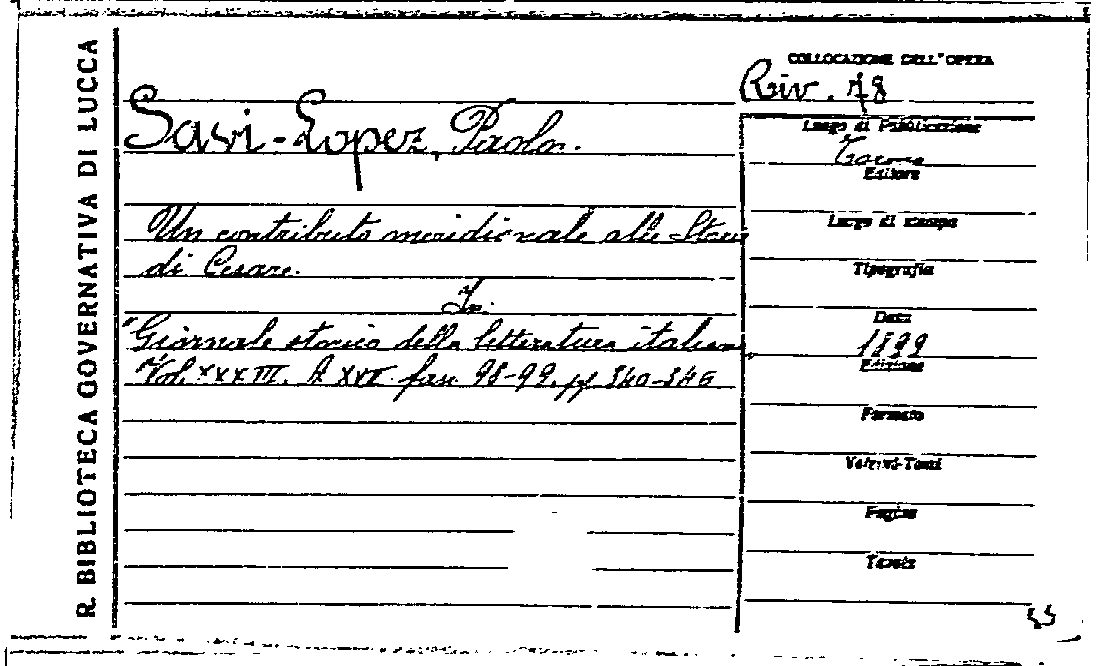 R. BIBLIOTECA GOVERNATIVA DI LUCCA
COLLOCAZIONE DELL'OPERA
Riv. 78
Savi-Lopez, Paolo.
Luogo di Pubblicazione
Editore
Un contributo meridionale alla
di Cesare.
In:
"Giornale storico della letteratura italiana
Vol. XXXIII. A XVII fasc. 98-99. pp 340-346
Luogo di stampa
Tipografia
Data
1899
Edizione
Formato
Volumi-Tomi
Pagine
Tavole